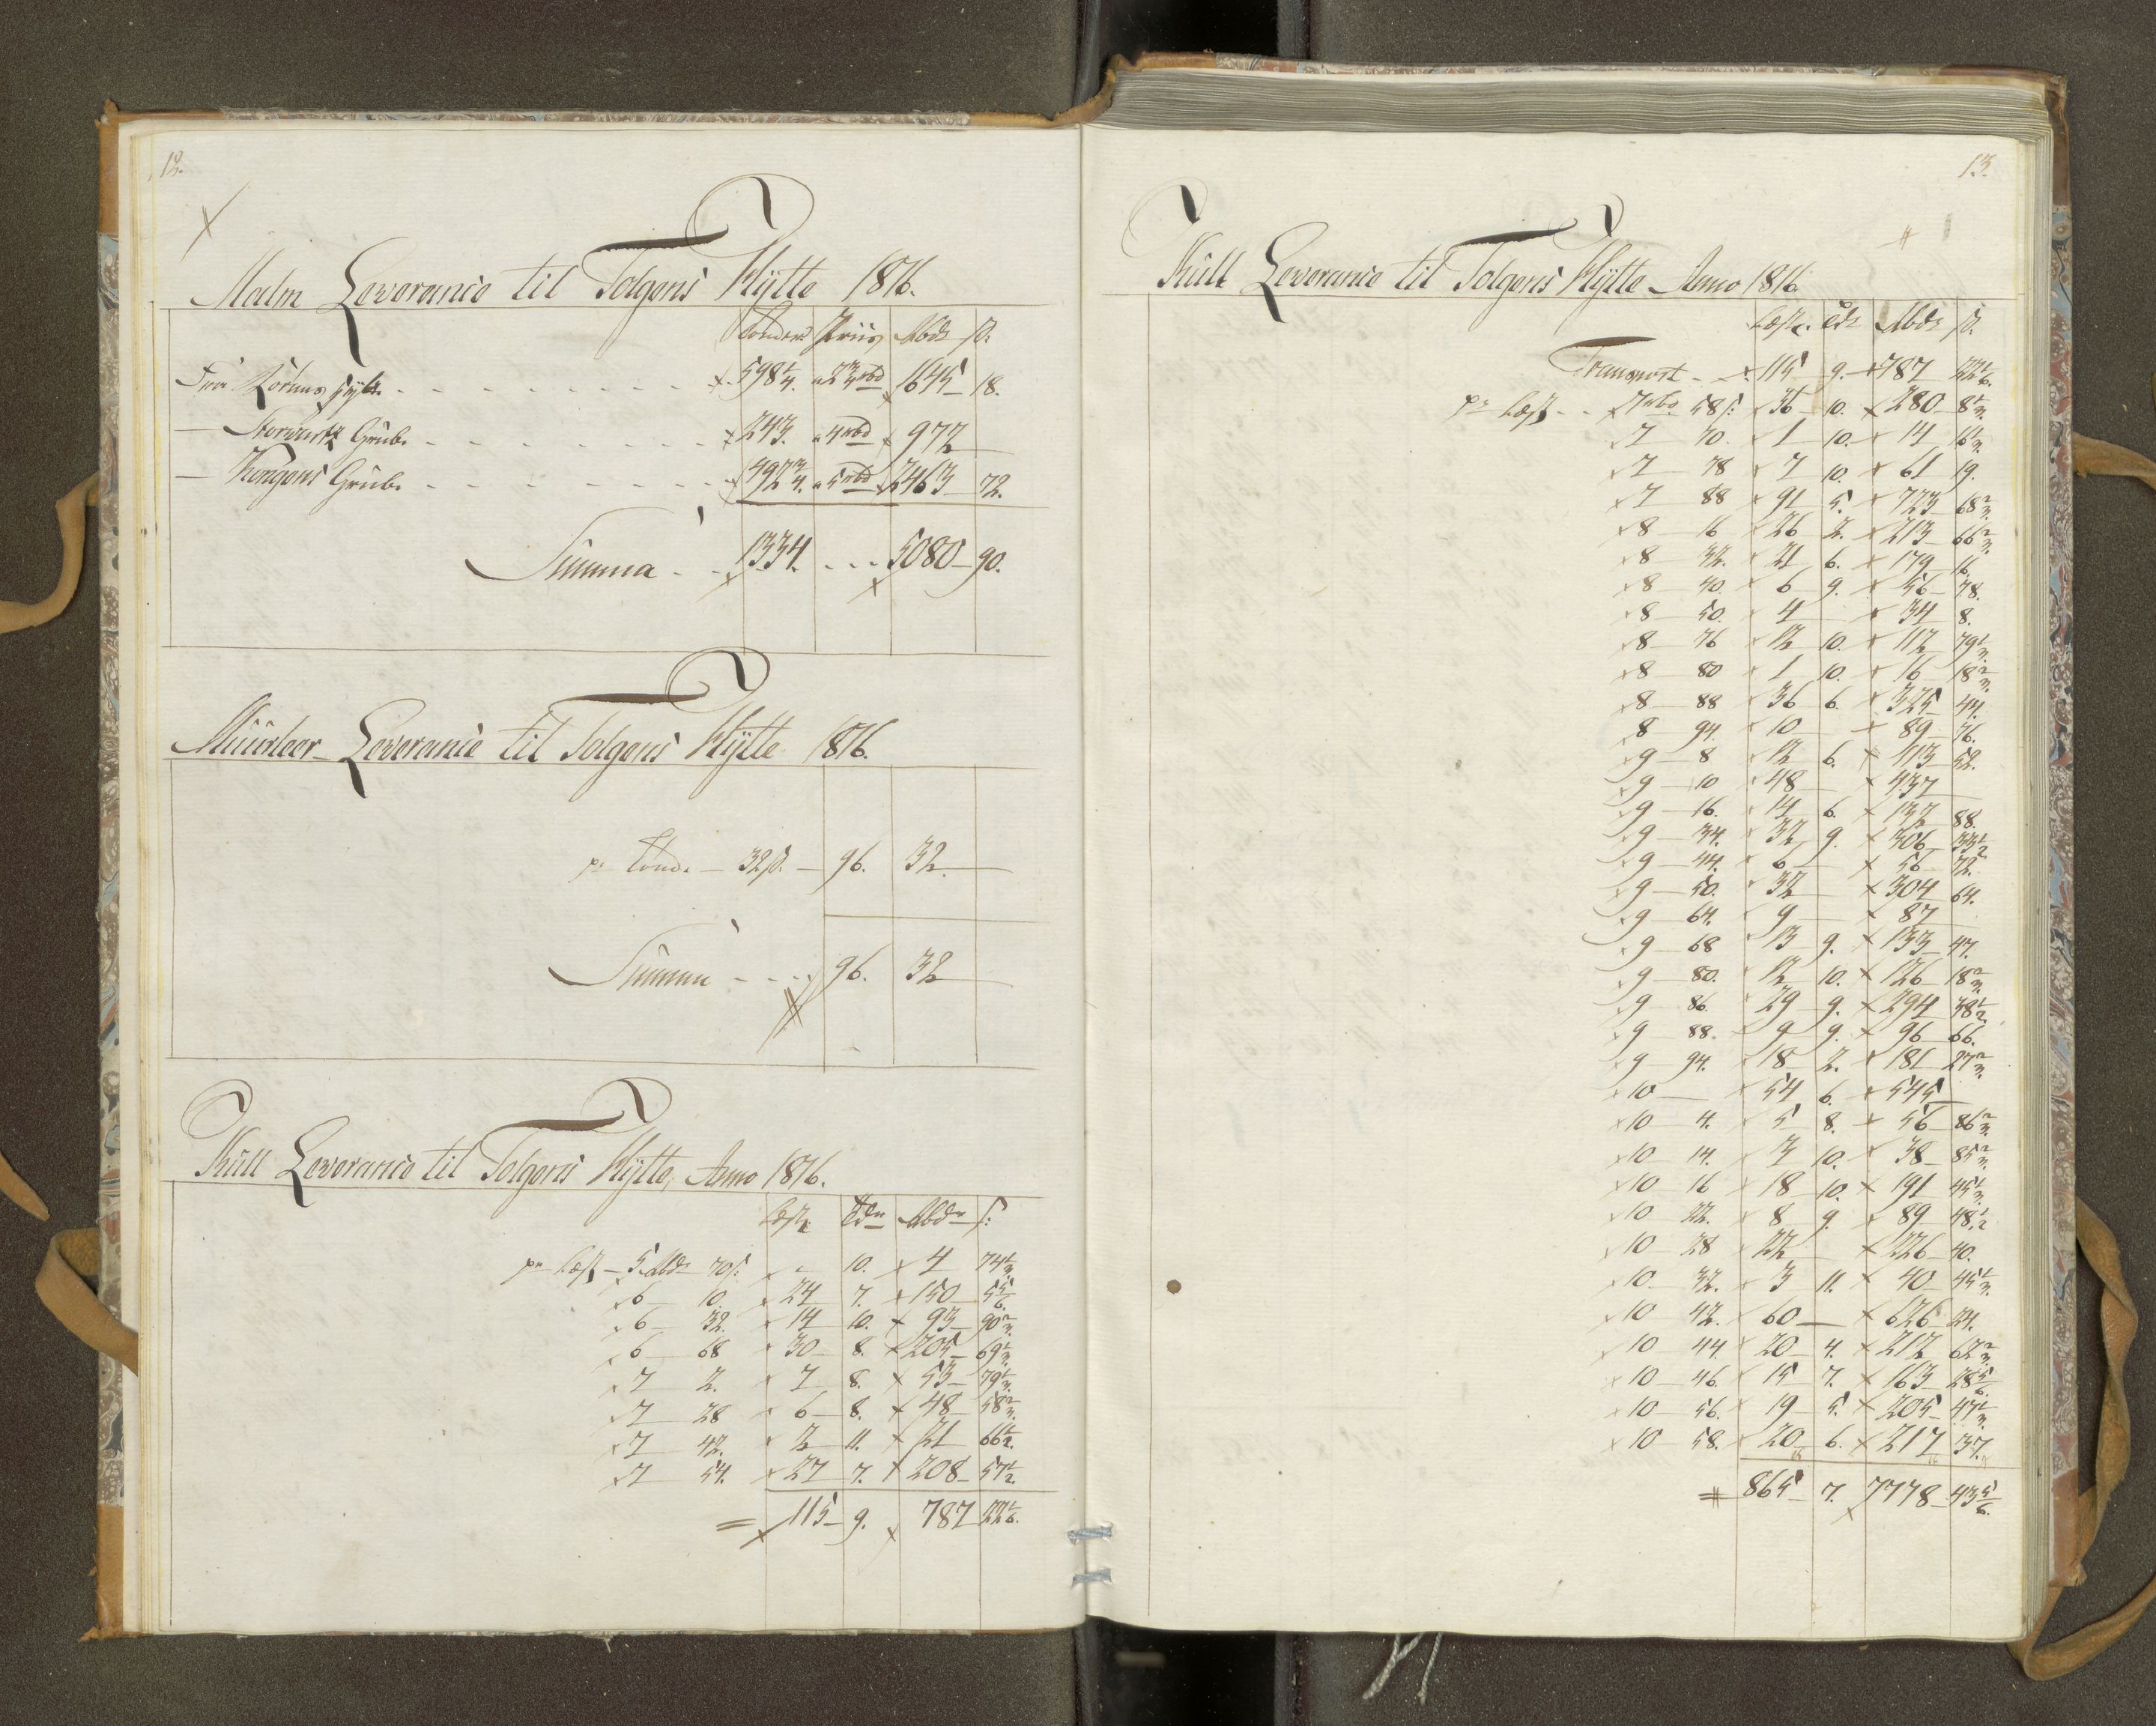 12.
Malm Leverance til Tolgens Hÿtte 1816.
Tønder Priis Rbdr s.
Fra Rörraas Hÿtte 598 1/4. a 2 3/4 rbd 1645 18.
— Storwartz Grube 243. a 4 rbd 972
— Kongens Grube 492 3/4. a 5 rbd 2463 72.
Summa 1334. 5080 90.
Muurleer Leverance til Tolgens Hÿtte 1816.
pr Tönde — 32 s. — 96. 32
Summa 96. 32
Kull Leverance til Tolgens Hÿtte, Anno 1816.
Læst Tdr Rbdr s:
pr Læst — 5 Rbdr 70 s: - 10. 4 74 1/3.
6 10. 24 7. 150 5 5/6.
6 32. 14 10. 93 90 2/3.
6 68 30 8. 205 69 1/3.
7 2. 7 8. 53 79 1/3.
7 28 6 8. 48 58 2/3.
7 42. 2 11. 21 66 1/2.
7 54. 27 7. 208 57 1/2.
= 115 9. 787 22 1/6.
13.
Kull Leverance til Tolgens Hÿtte Anno 1816
Læst. Tdr Rbdr s.
Transport 115 9. 787 22 1/6.
pr Læst 7 rbd 58 s: 36 10. 280 8 1/3.
7 70. 1 10. 14 16 1/3.
7 78 7 10. 61 19.
7 88 91 5. 723 68 2/3.
8 16 26 2. 213 66 2/3.
8 32. 21 6. 179 16.
8 40. 6 9. 56 78.
8 50. 4 34 8.
8 76 12 10. 112 79 1/3.
8 80 1 10. 16 18 2/3.
8 88 36 6. 325 44.
8 94. 10 89 76.
9 8 12 6. 113 52.
9 10 48 437
9 16. 14 6. 132 88.
9 34. 32 9. 306 33 1/2
9 44. 6 56 72.
9 50. 32 304 64.
9 64. 9 87
9 68 13 9. 133 47.
9 80. 12 10. 126 18 2/3.
9 86. 29 9. 294 38 1/2.
9 88. 9 9. 96 66.
9 94. 18 2. 181 27 2/3.
10 54 6. 545
10 4. 5 8. 56 86 2/3.
10 14. 3 10. 38 85 2/3.
10 16 18 10. 191 45 1/3.
10 22. 8 9. 89 48 1/2
10 28 22 226 40.
10. 32. 3 11. 40 45 1/3.
10 42. 60 626 24.
10 44. 20 4. 212 62 2/3.
10 46. 15 7. 163 28 5/6.
10 56. 19 5. 205 47 1/3.
10 58. 20 6. 217 37.
= 865 7. 7778 43 5/6.